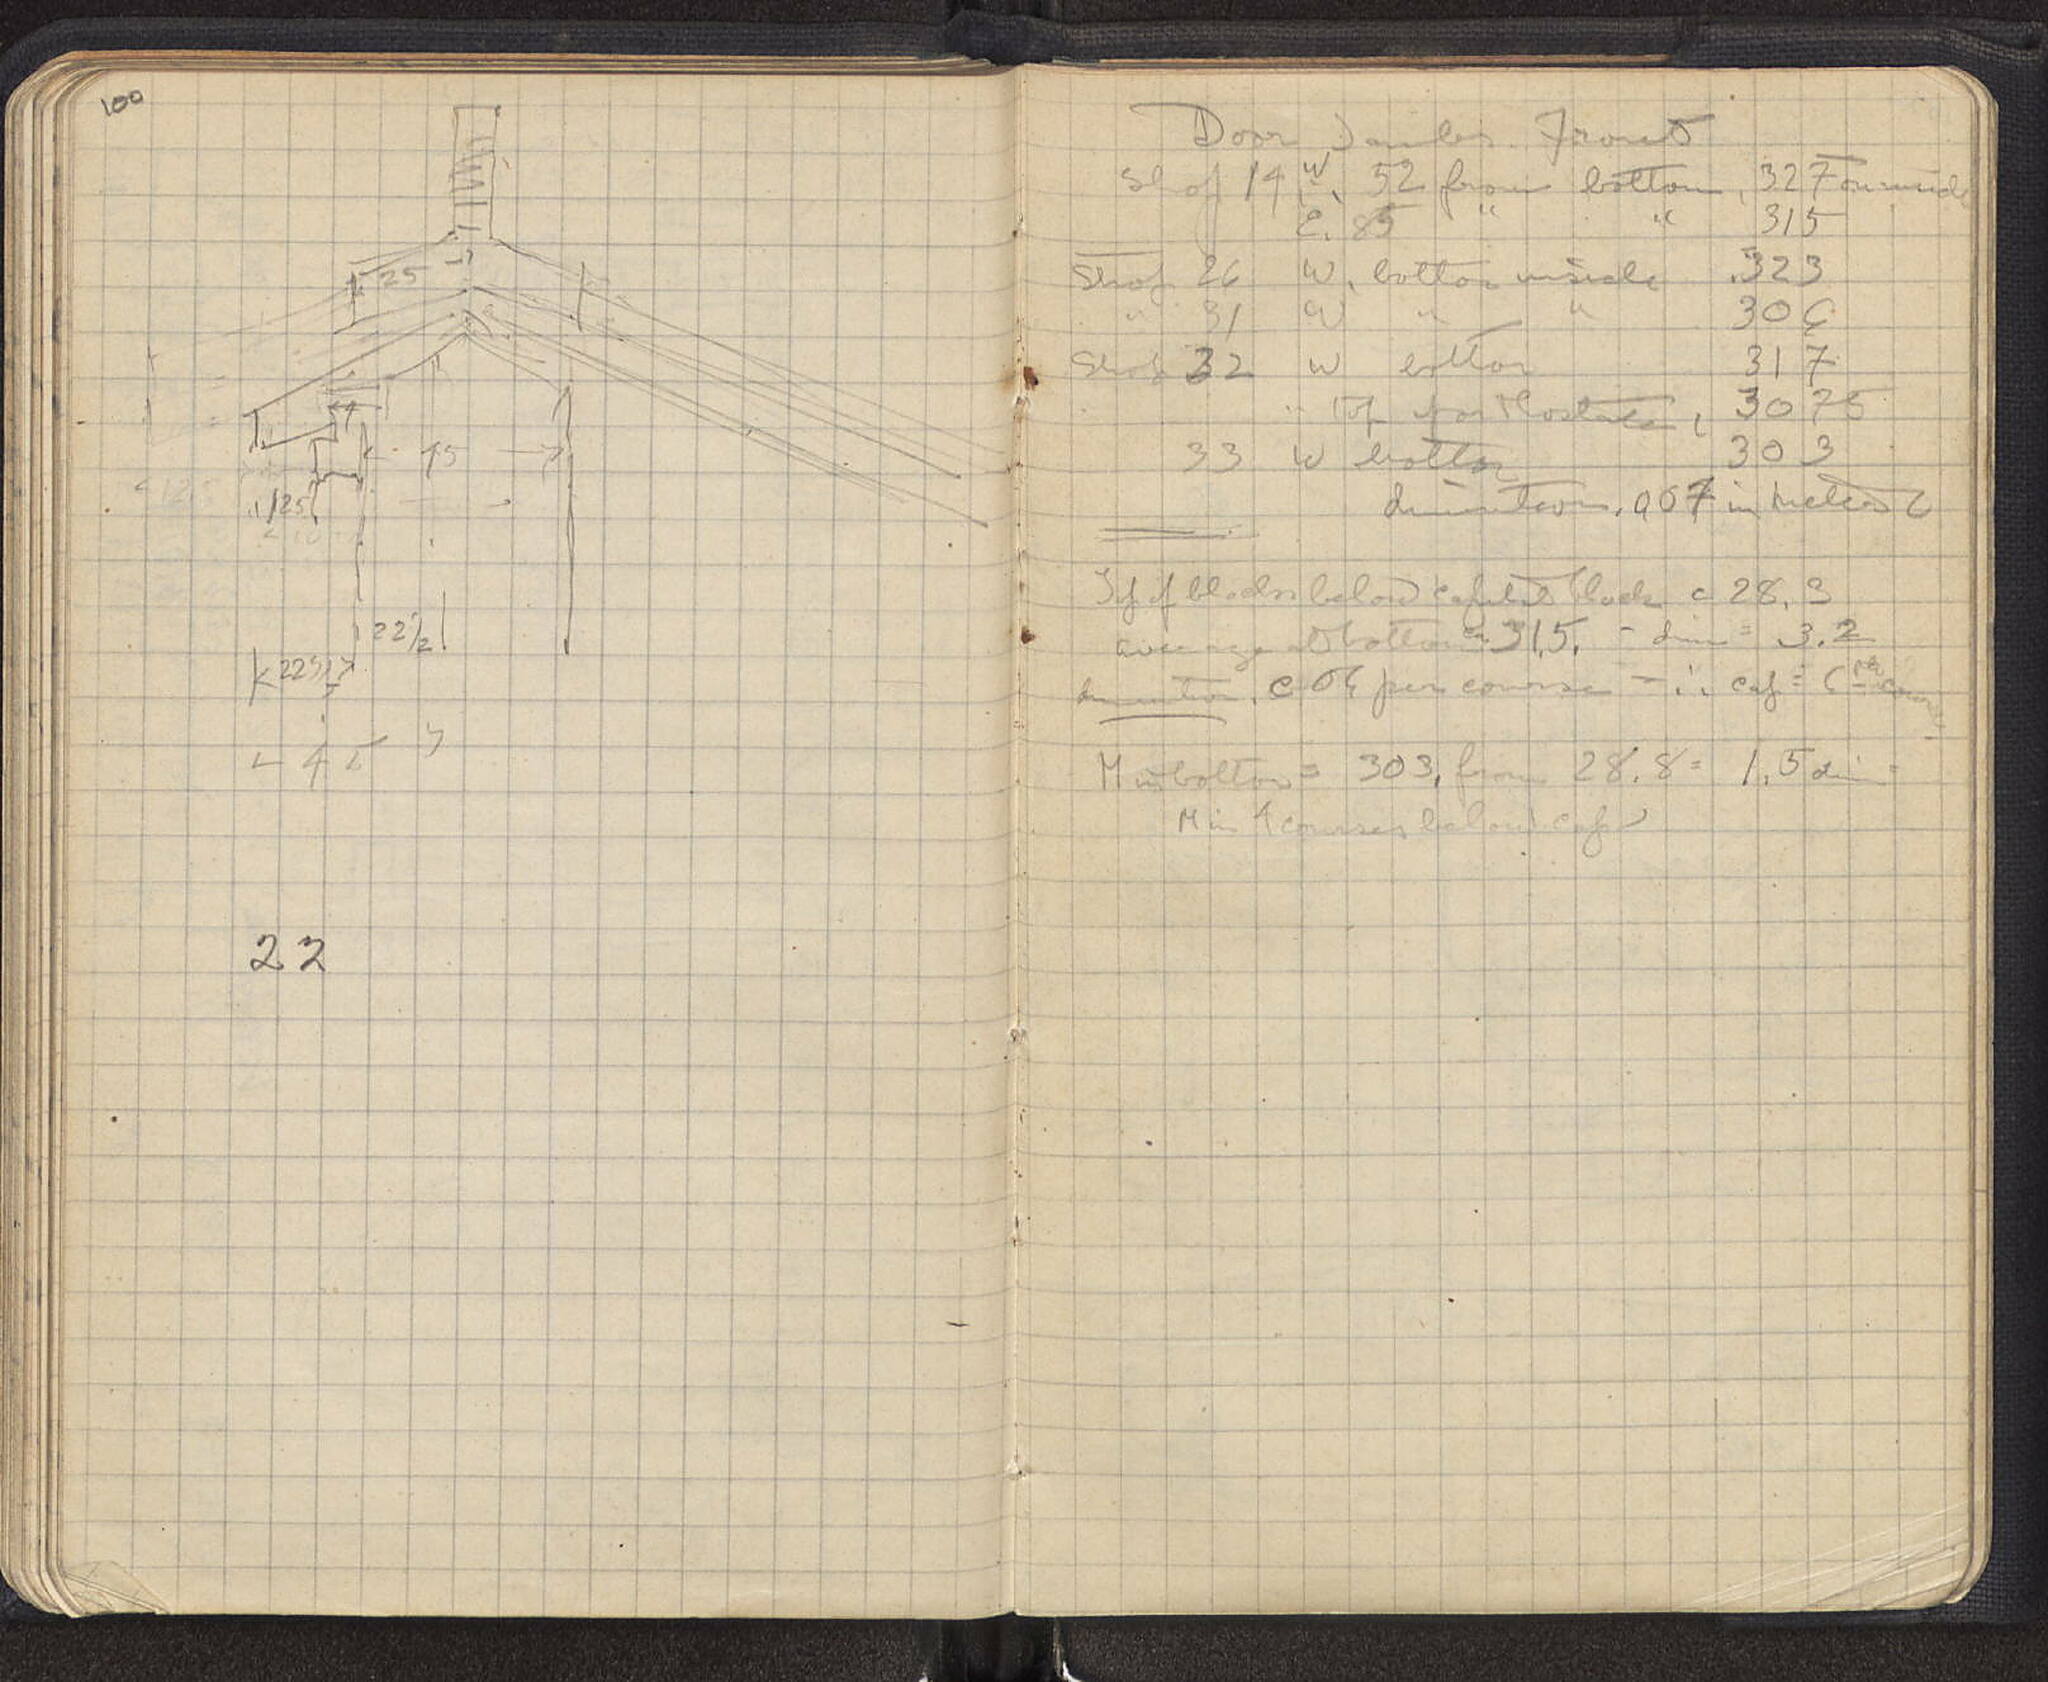 100
25
45
.125
22½
22½
45
22
Door Jambs Front
Shop 14 W. 52 from bottom, 327 on inside
E. 85 " " 315
Shop 26 W. bottom inside .323
" 31 W " " 306
Shop 32 W bottom 317
" Top 3075
33 W bottom 303
diminution .007 in
Top of blocks below capital block c 28.3
average at bottom = 31.5. - dim = 3.2
diminution. per course - ∴ cap = 6th course
M in bottom = 303. from 28.8 = 1.5 dim =
M is 4 courses below cap